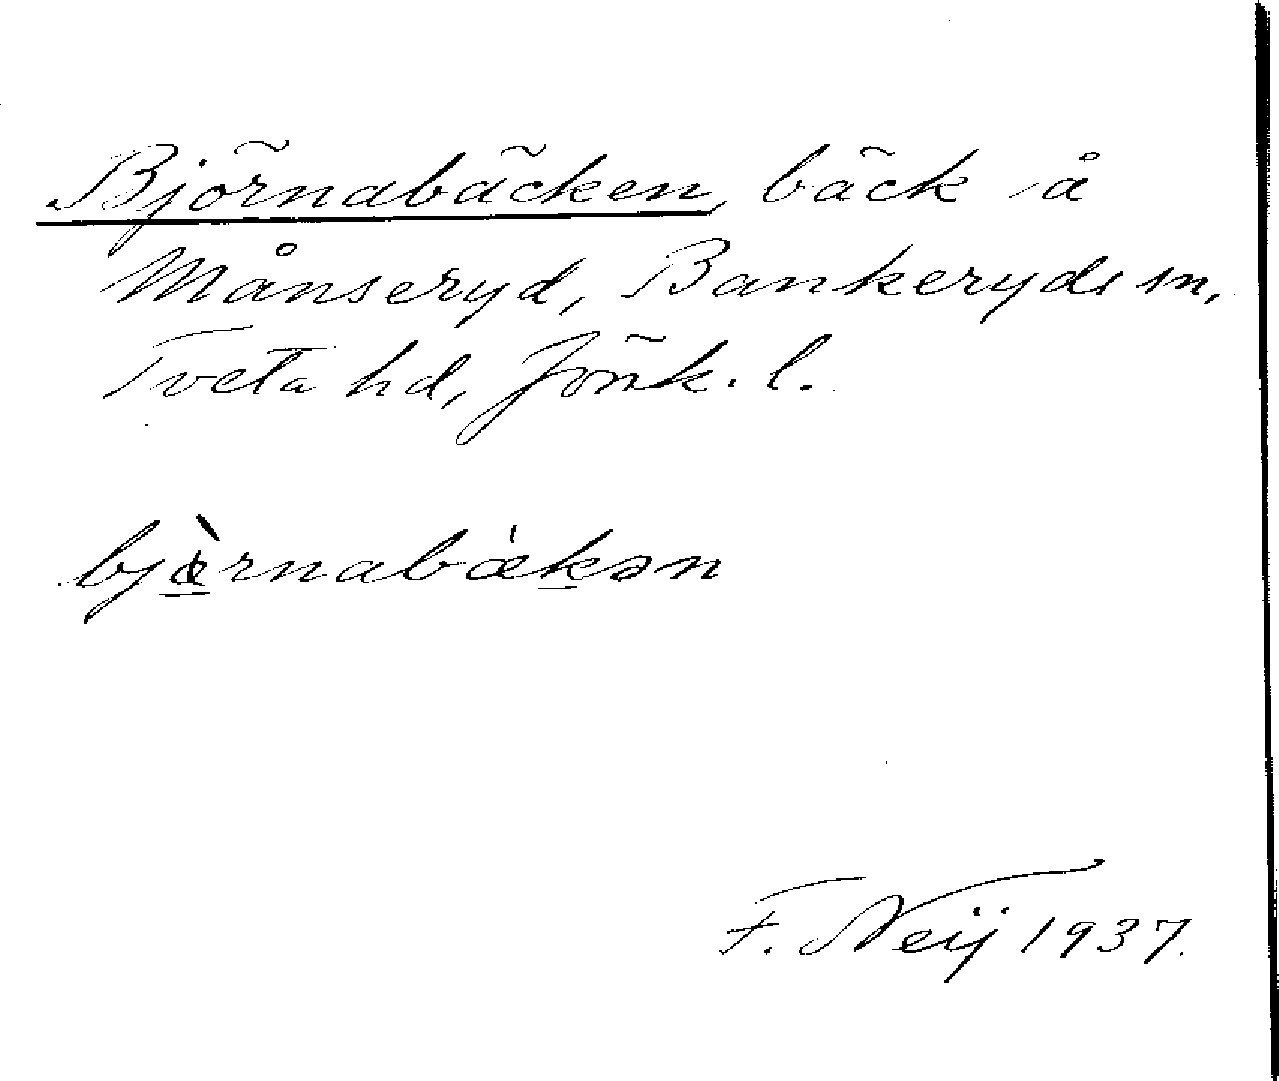 Björnabäcken, bäck å
Månseryd, Bankeryds sn,
Tveta hd, Jönk. l.
bjæ̀rnabǽkən
F. Neij 1937.